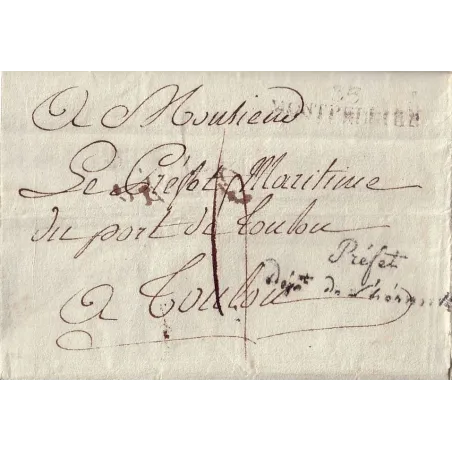 33
MONTPELLIER
A Monsieur
Le Préfet Maritime
du port de Toulon
Préfet
dépt de l'hérault
a Toulon